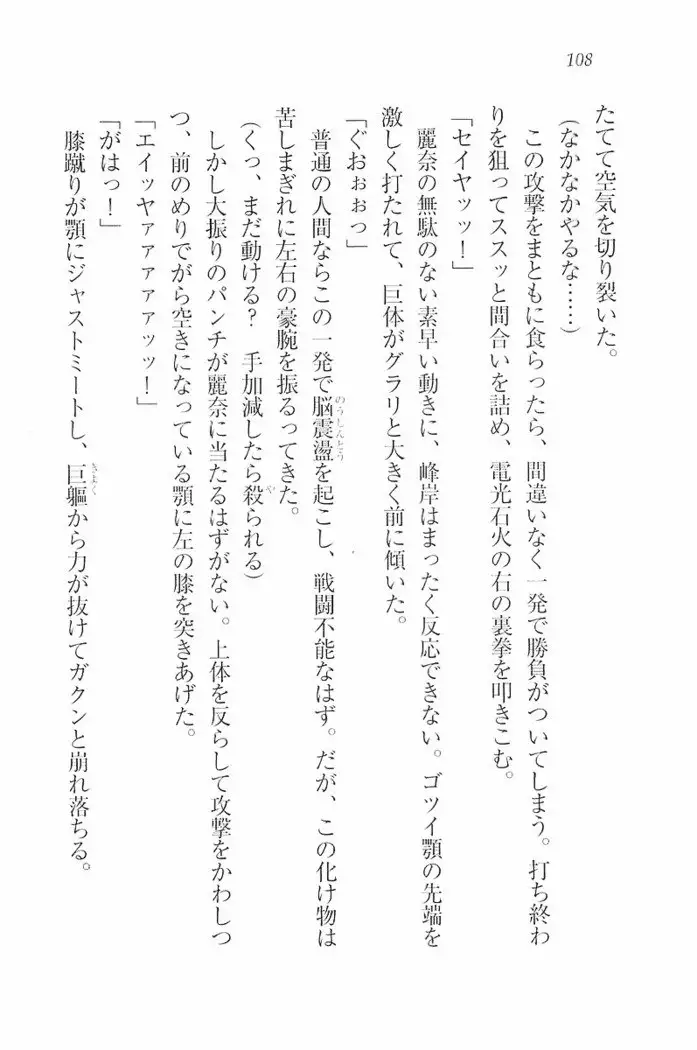 108
たてて空気を切り裂いた。
(なかなかやるな……)
この攻撃をまともに食らったら、間違いなく一発で勝負がついてしまう。打ち終わ
りを狙ってススッと間合いを詰め、電光石火の右の裏拳を叩きこむ。
「セイヤッッ！」
麗奈の無駄のない素早い動きに、峰岸はまったく反応できない。ゴツイ顎の先端を
激しく打たれて、巨体がグラリと大きく前に傾いた。
「ぐおぉぉっ」
普通の人間ならこの一発で脳震盪を起こし、戦闘不能なはず。だが、この化け物は
のうしんとう
苦しまぎれに左右の豪腕を振るってきた。
(くっ、まだ動ける？　手加減したら殺られる)
や
しかし大振りのパンチが麗奈に当たるはずがない。上体を反らして攻撃をかわしつ
つ、前のめりでがら空きになっている顎に左の膝を突きあげた。
「エイッヤァァァァァッッ！」
「がはっ！」
膝蹴りが顎にジャストミートし、巨軀から力が抜けてガクンと崩れ落ちる。
きょく